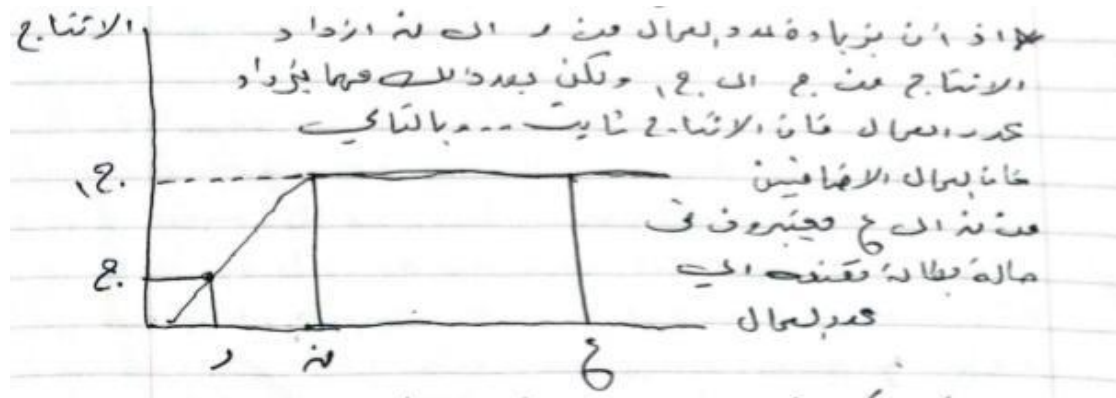 الانتاج
* اذ أن بزيادة عدد العمال من د الى نه ازداد
الانتاج من ج الى ج١ ولكن بعد ذلك مهما يزداد
عدد العمال فان الانتاج ثابت ... وبالتالي
فان العمال الاضافيين
من نه الى ع معتبرون في
حالة بطالة مقنعه اي
عدد العمال
ج١
ج
د نه ع